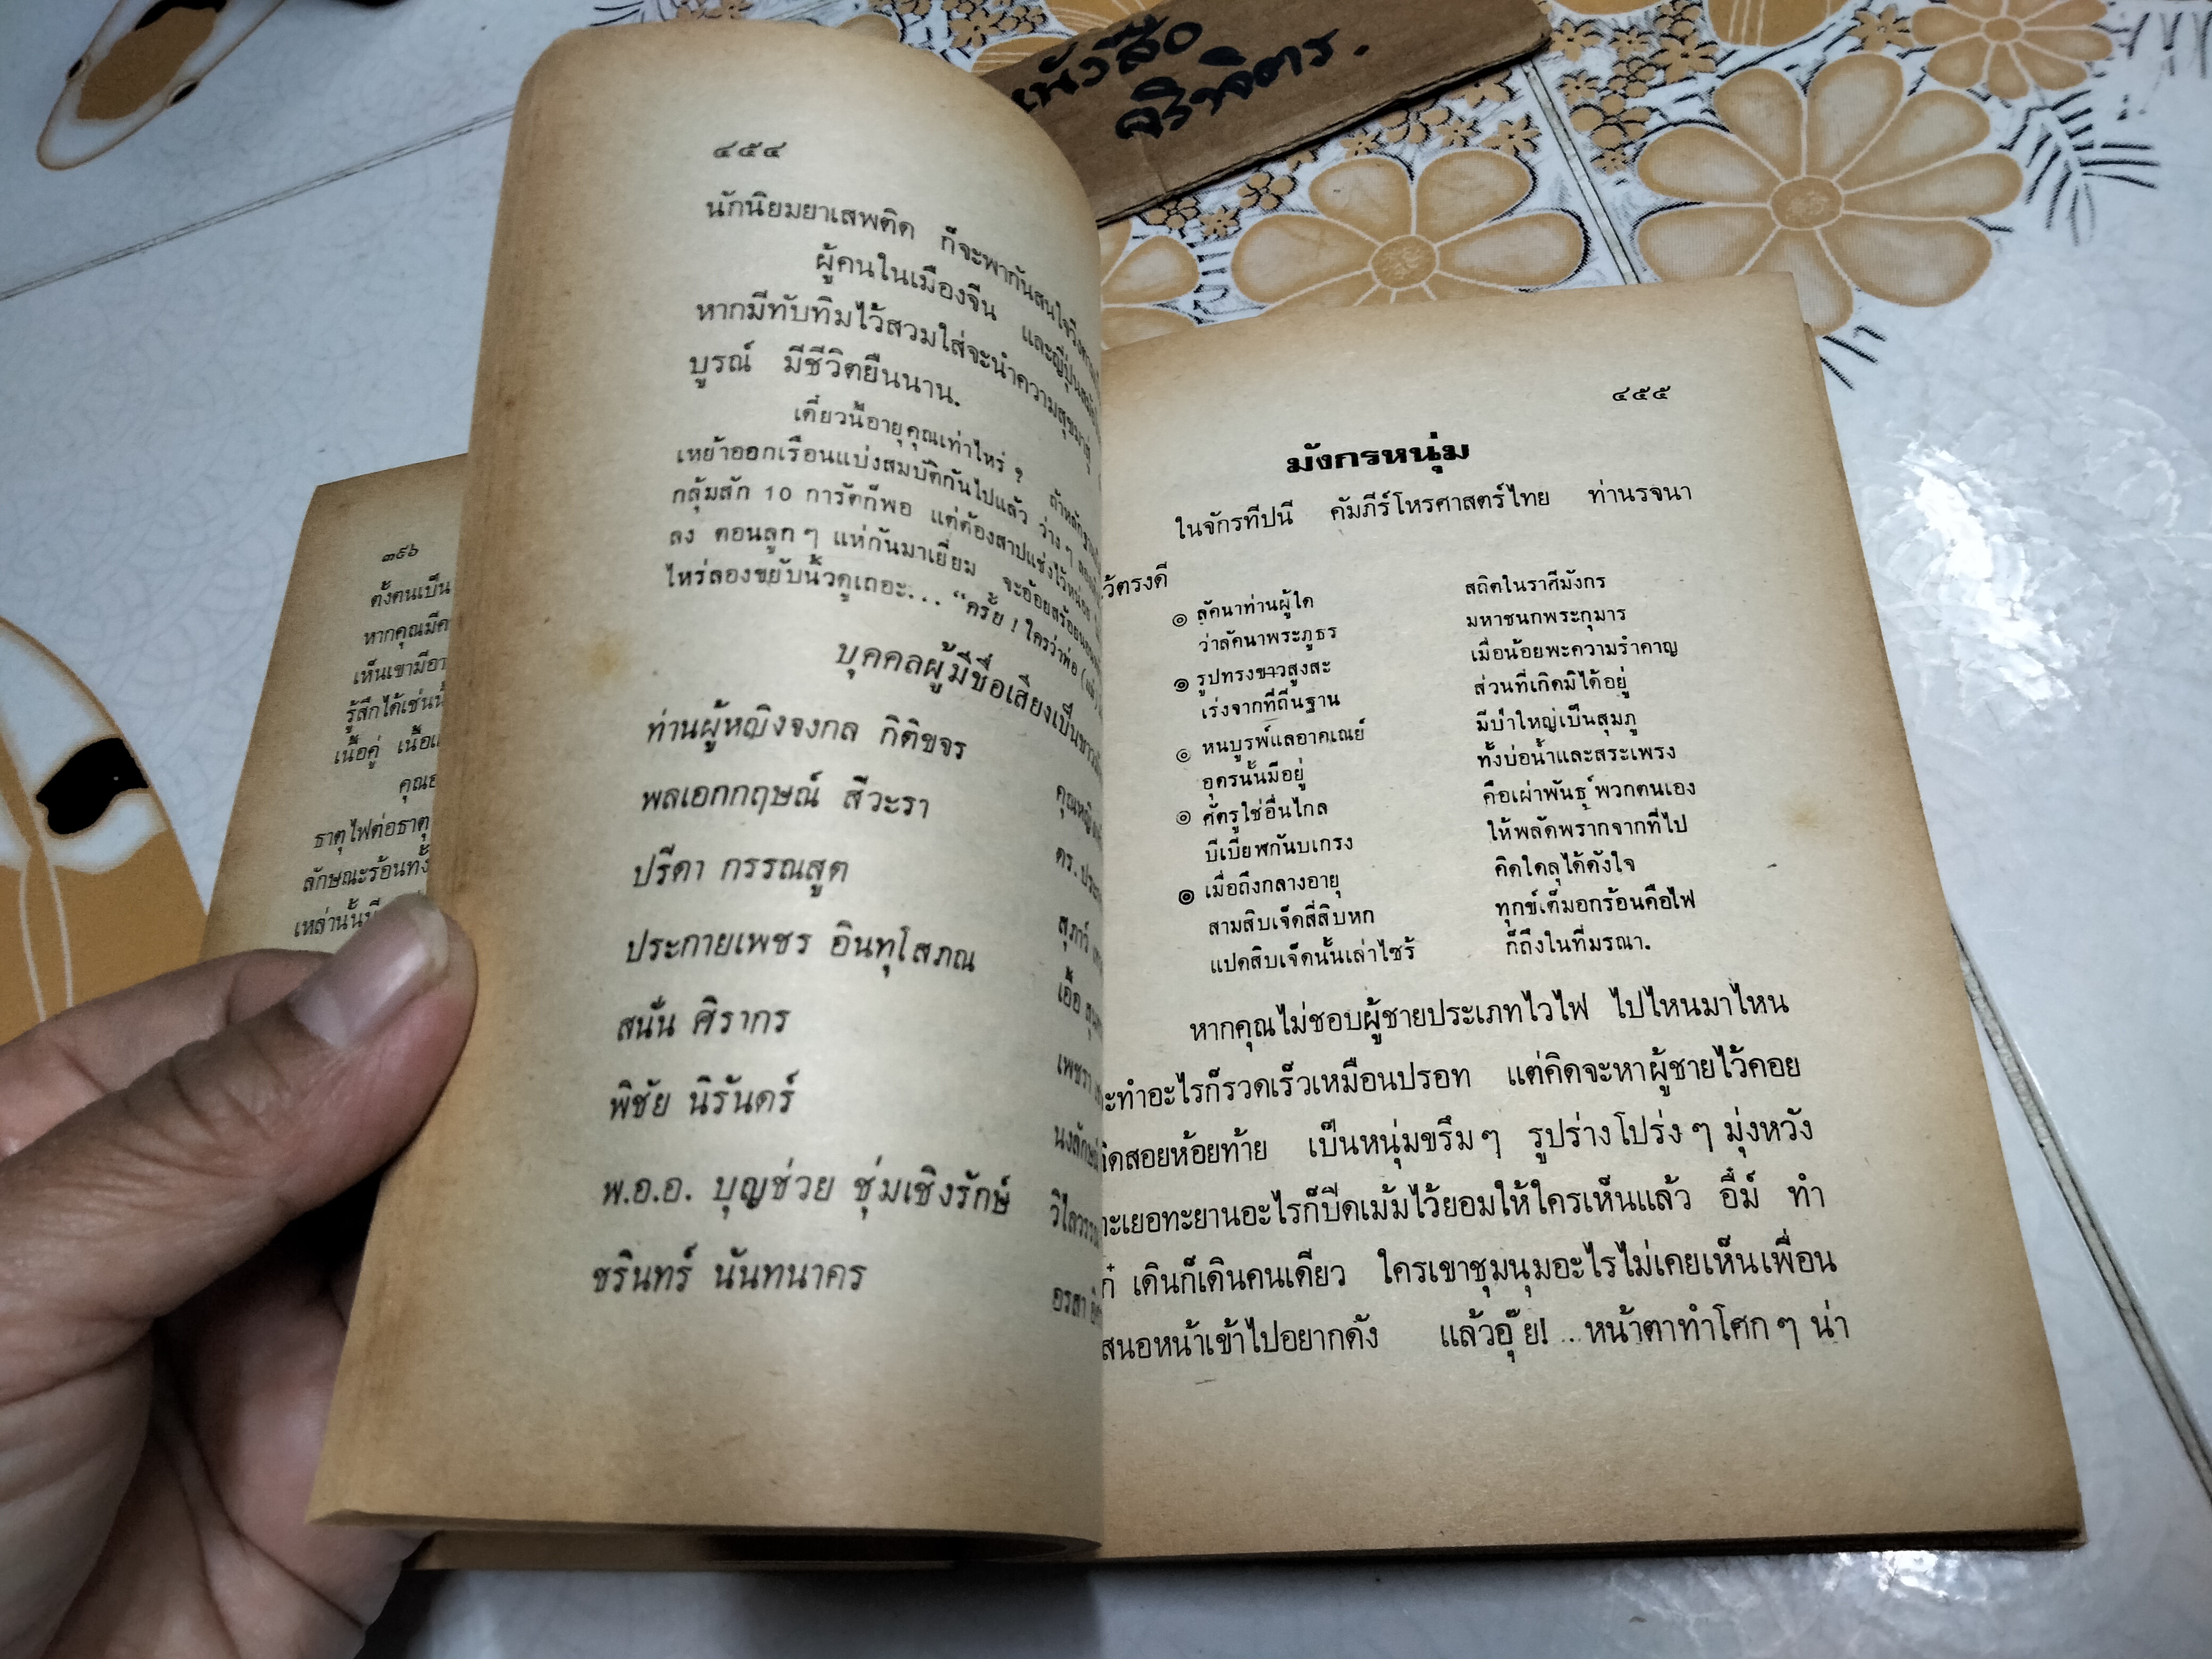 หนังสือ
ศรีพิจิตร.
๓๙๖
ตั้งตนเป็น
หากคุณมีค
เห็นเขามีอา
รู้สึกได้เช่นน
เนื้อคู่ เนื้อแ
คุณอ
ธาตุไฟต่อธาตุ
ลักษณะร้อนทั้
เหล่านั้นมี
๔๕๔
นักนิยมยาเสพติด ก็จะพากันสนใจ
ผู้คนในเมืองจีน และญี่ปุ่น
หากมีทับทิมไว้สวมใส่จะนำความสุข
บูรณ์ มีชีวิตยืนนาน.
เดี๋ยวนี้อายุคุณเท่าไหร่ ? ถ้าหลัก
เหย้าออกเรือนแบ่งสมบัติกันไปแล้ว ว่าง ๆ
กลุ้มสัก 10 การัตก็พอ แต่ต้องสาปแช่งไว้หน่อย
ลง ตอนลูก ๆ แห่กันมาเยี่ยม จะอ้อยสร้อย
ไหร่ลองขยับนิ้วดูเถอะ... “ครั้ย ! ใครว่าพ่อ (แม่)
บุคคลผู้มีชื่อเสียงเป็นชาว
ท่านผู้หญิงจงกล กิติขจร
คุณหญิง
พลเอกกฤษณ์ สีวะรา
ดร. ประ
ปรีดา กรรณสูต
สุภาว์
ประกายเพชร อินทุโสภณ
เอื้อ สุน
สนั่น ศิรากร
เพชรา
พิชัย นิรันดร์
นงลักษณ์
พ.อ.อ. บุญช่วย ชุ่มเชิงรักษ์
วิไลวรรณ
ชรินทร์ นันทนาคร
อรสา
๔๕๕
มังกรหนุ่ม
ในจักรทีปนี คัมภีร์โหรศาสตร์ไทย ท่านรจนา
ว้ตรงดี
๏ ลัคนาท่านผู้ใด สถิตในราศีมังกร
ว่าลัคนาพระภูธร มหาชนกพระกุมาร
๏ รูปทรงขาวสูงสะ เมื่อน้อยพะความรำคาญ
เร่งจากที่ถิ่นฐาน ส่วนที่เกิดมิได้อยู่
๏ หนบูรพ์แลอาคเณย์ มีป่าใหญ่เป็นสุมภู
อุดรนั้นมีอยู่ ทั้งบ่อน้ำและสระเพรง
๏ ศัตรูใช่อื่นไกล คือเผ่าพันธุ์พวกตนเอง
บีเบียฬกันบเกรง ให้พลัดพรากจากที่ไป
๏ เมื่อถึงกลางอายุ คิดใดลุได้ดังใจ
สามสิบเจ็ดสี่สิบหก ทุกข์เต็มอกร้อนคือไฟ
แปดสิบเจ็ดนั้นเล่าไซร้ ก็ถึงในที่มรณา.
หากคุณไม่ชอบผู้ชายประเภทไวไฟ ไปไหนมาไหน
ะทำอะไรก็รวดเร็วเหมือนปรอท แต่คิดจะหาผู้ชายไว้คอย
ติดสอยห้อยท้าย เป็นหนุ่มขรึม ๆ รูปร่างโปร่ง ๆ มุ่งหวัง
ะเยอทะยานอะไรก็ปีดเม้มไว้ยอมให้ใครเห็นแล้ว อื๋ม์ ทำ
ก๋ เดินก็เดินคนเดียว ใครเขาชุมนุมอะไรไม่เคยเห็นเพื่อน
สนอหน้าเข้าไปอยากดัง แล้วอุ๊ย! ...หน้าตาทำโศก ๆ น่า